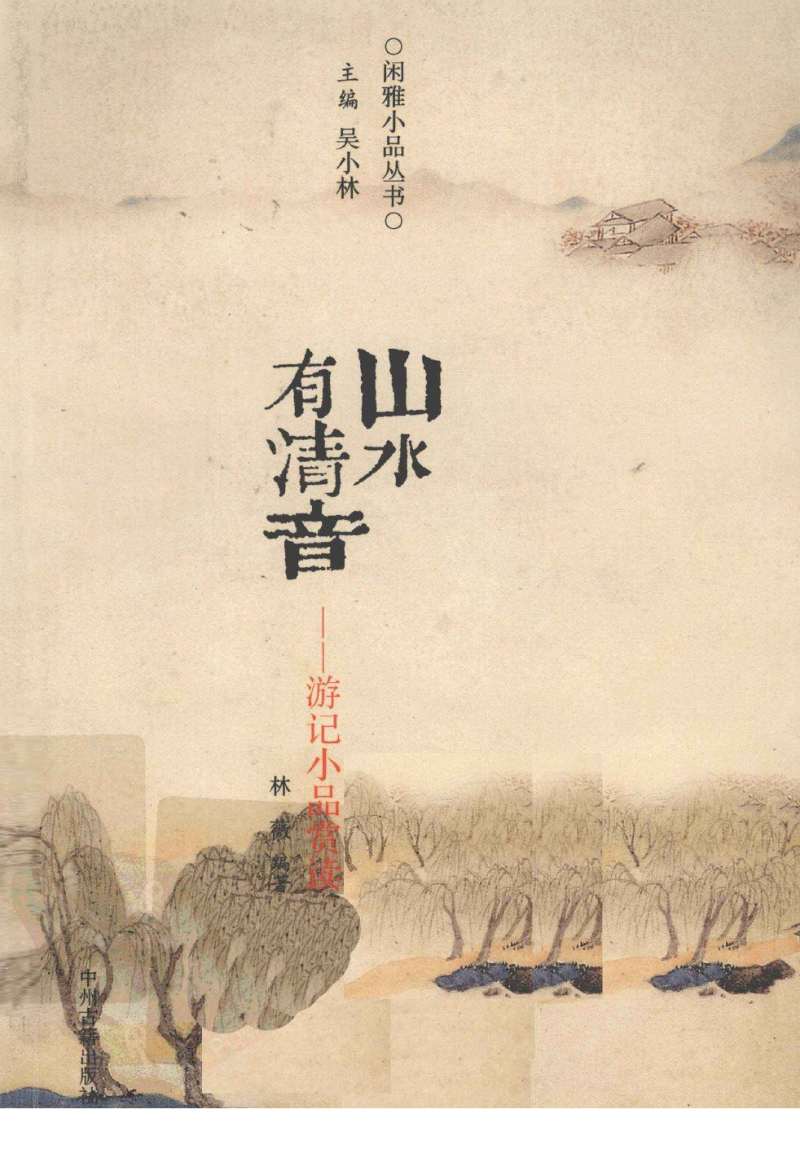 ○闲雅小品丛书○
主编 吴小林
山水
有清音
——游记小品赏读
林薇 编著
中州古籍出版社